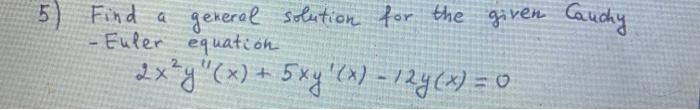 5) Find a general solution for the given Cauchy
- Euler equation
2x²y"(x) + 5xy'(x) - 12y(x) = 0